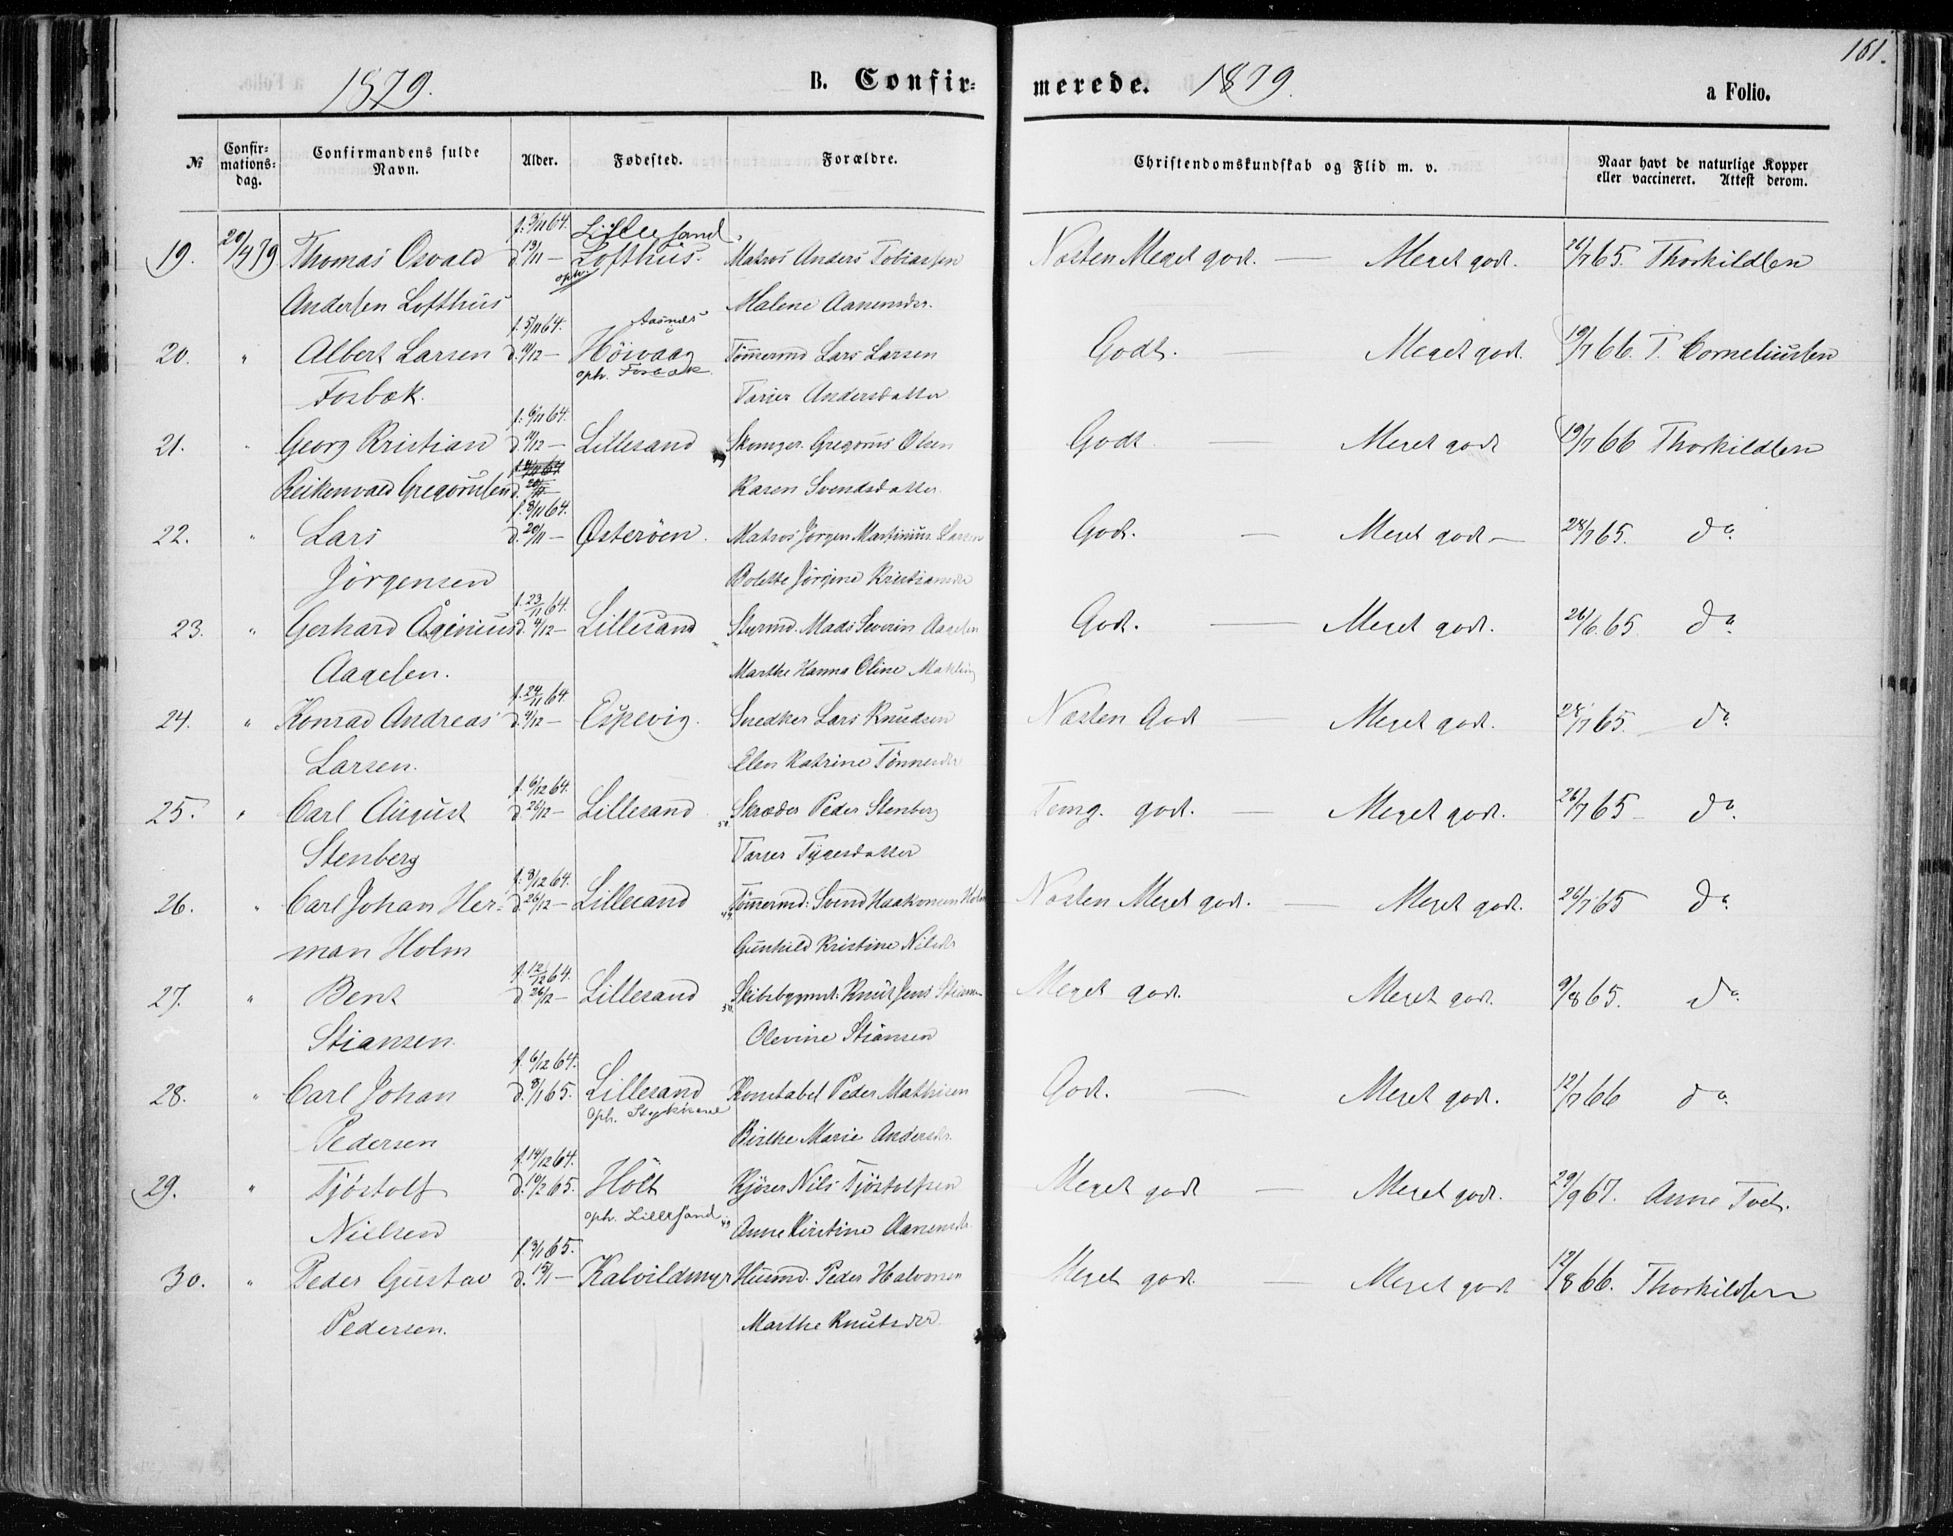 161.
1879. B. Confir= merede. 1879. a Folio.
№ Confir=mations=dag. Confirmandens fulde Navn. Alder. Fødested. Forældre. Christendomskundskab og Flid m. v. Naar havt de naturlige Kopper eller vaccineret. Attest derom.
f. 3/11 64. Lillesand
19. 20/4 79 Thomas Osvald d. 13/11 — Lofthus. Matros Anders Tobiassen Næsten Meget godt. — Meget godt. 26/7 65. Thorkildsen
oph.
Andersen Lofthus Malene Aanensdr.
f. 5/11 64. Aasnæs
20. " Albert Larsen d. 11/12 — Höivaag Tömermd Lars Larsen Godt. Meget godt. 19/7 66. T. Corneliusen
oph. Fosbæk.
Fosbæk. Tarier Andersdatter
f. 6/11 64.
21. " Georg Kristian d. 11/12 — Lillesand Skomger. Gregorius Olsen Godt — Meget godt 19/7 66 Thorkildsen
Reikenvald Gregoriusen d. 20/11 — Karen Svendsdatter
f. 8/11 64.
22. " Lars d. 20/11 — Østeröen. Matros Jörgen Martinius Larsen Godt. — Meget godt — 28/7 65. do.
Jörgensen Bolette Jörgine Kristiansdr
f. 23/11 64.
23. " Gerhard Åginius d. 4/12 — Lillesand Styrmd. Mads Severin Aagesen Godt. — Meget godt. 26/6 65. do.
Aagesen. Marthe Hanna Oline
f. 24/11 64.
24. " Konrad Andreas d. 4/12 — Espevig. Snedker Lars Knudsen Næsten Godt Meget godt. 28/7 65. do.
Larsen. Elen Katrine Tönnesdr
f. 6/12 64.
25. " Carl August d. 26/12 — Lillesand Skræder Peder Stenberg Temg. godt. — Meget godt. 26/7 65 — do.
Stenberg Tarier Tygesdatter
f. 8/12 64.
26. " Carl Johan Her- d. 26/12 — Lillesand Tömermd: Svend Haakonsen Holm Næsten Meget godt. — Meget godt. 26/7 65 do.
man Holm Gunhild Kristine Nilsdr
f. 12/12 64.
27. " Bent d. 26/12 — Lillesand Skibsbygmst: Knut Jens Stiansen Meget godt. Meget godt. 9/8 65. do.
Stiansen. Olevine Stiansen
f. 6/12 64.
28. " Carl Johan d. 8/1 65. Lillesand Konstabel Peder Mathisen Godt. — Meget godt. 12/7 66 do.
oph.
Pedersen Birthe Marie Andersdr.
f. 14/12 64.
29. " Tjöstolf d. 19/2 65. Holt Kjörer Nils Tjöstolfsen Meget godt — Meget godt. 29/9 67. Anne Tvet.
oph. Lillesand
Nielsen Anne Kirstine Aanensdr.
f. 3/1 65.
30. " Peder Gustav d. 15/1 — Kalvildmyr Husmd. Peder Halvorsen Meget godt — Meget godt 12/8 66. Thorkildsen
Pedersen. Marthe Knutsdr.